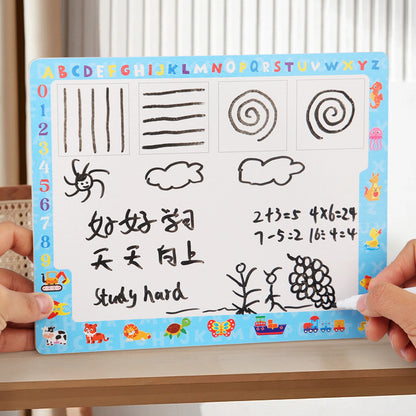 ABCDEFGHIJKLMNOPQRSTUVWXYZ
0
1
2
3
4
5
6
7
8
9
好好学习
天天向上
study hard
2+3=5 4×6=24
7-5=2 16÷4=4